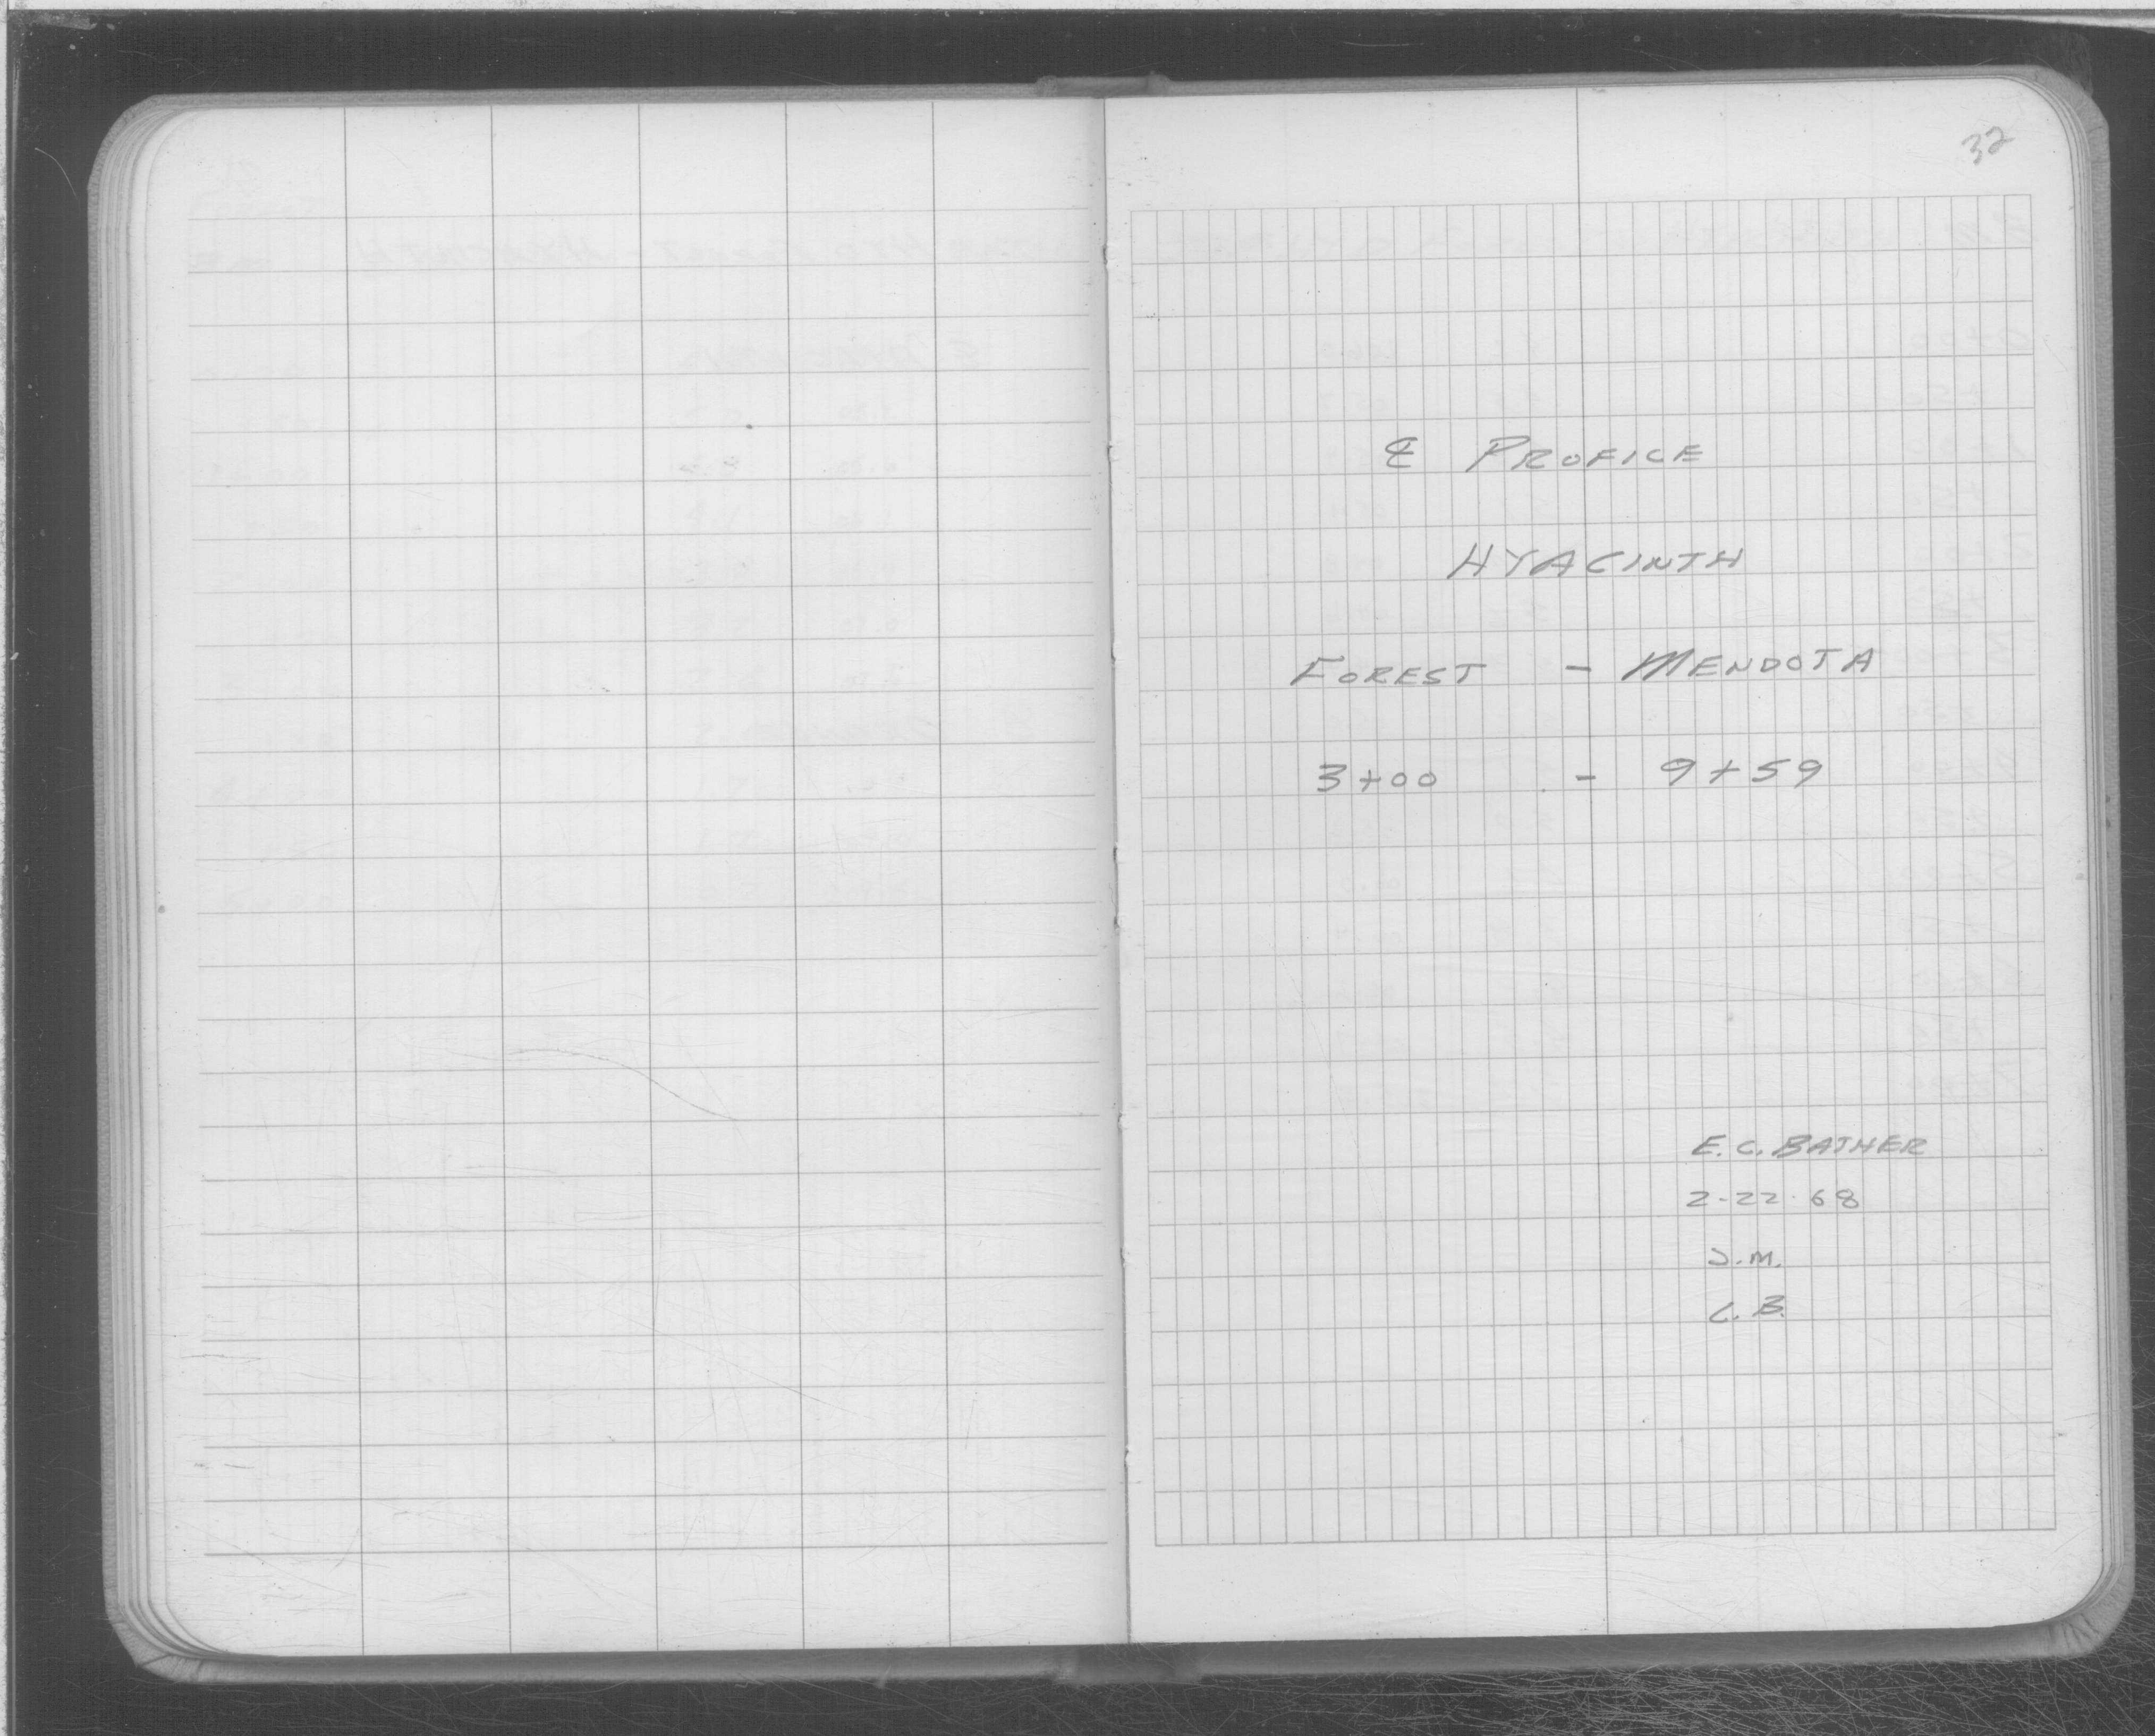 32
℄ PROFILE
HYACINTH
FOREST - MENDOTA
3+00 - 9+59
E.C. BATHER
2-22-68
J.M.
C.B.